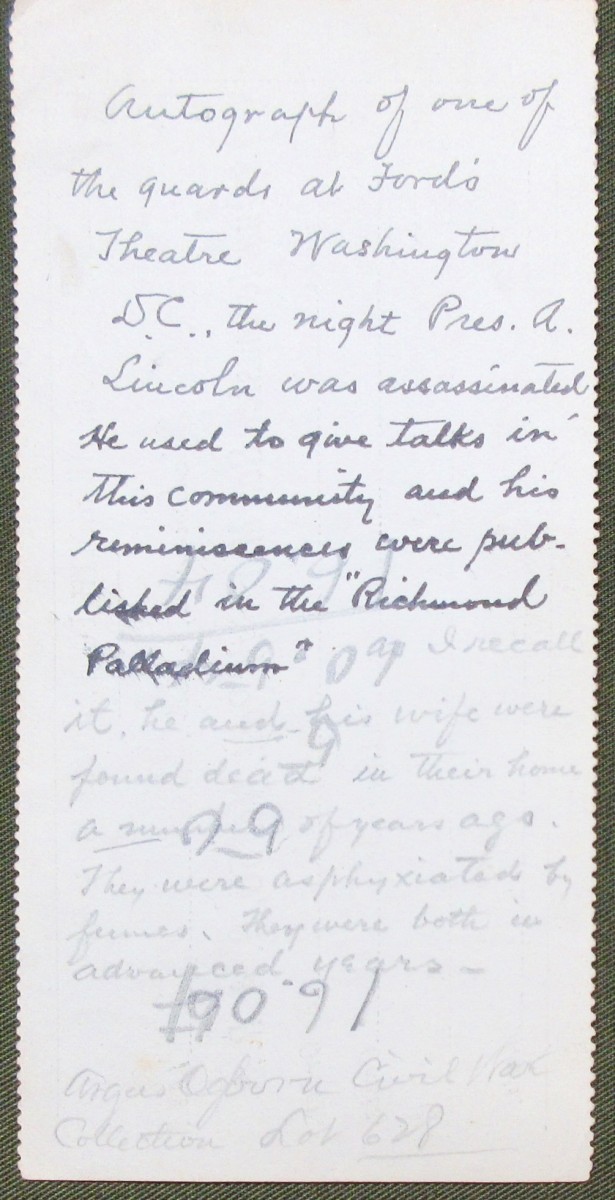 Autograph of one of
the guards at Ford's
Theatre Washington
D.C., the night Pres. A.
Lincoln was assassinated
He used to give talks in
this community and his
reminiscences were pub-
lished in the "Richmond
Palladium"
as I recall
it, he and his wife were
found dead in their home
a number of years ago.
They were asphyxiated by
fumes. They were both in
advanced years -
Argus Ogborn Civil War
Collection Lot 628